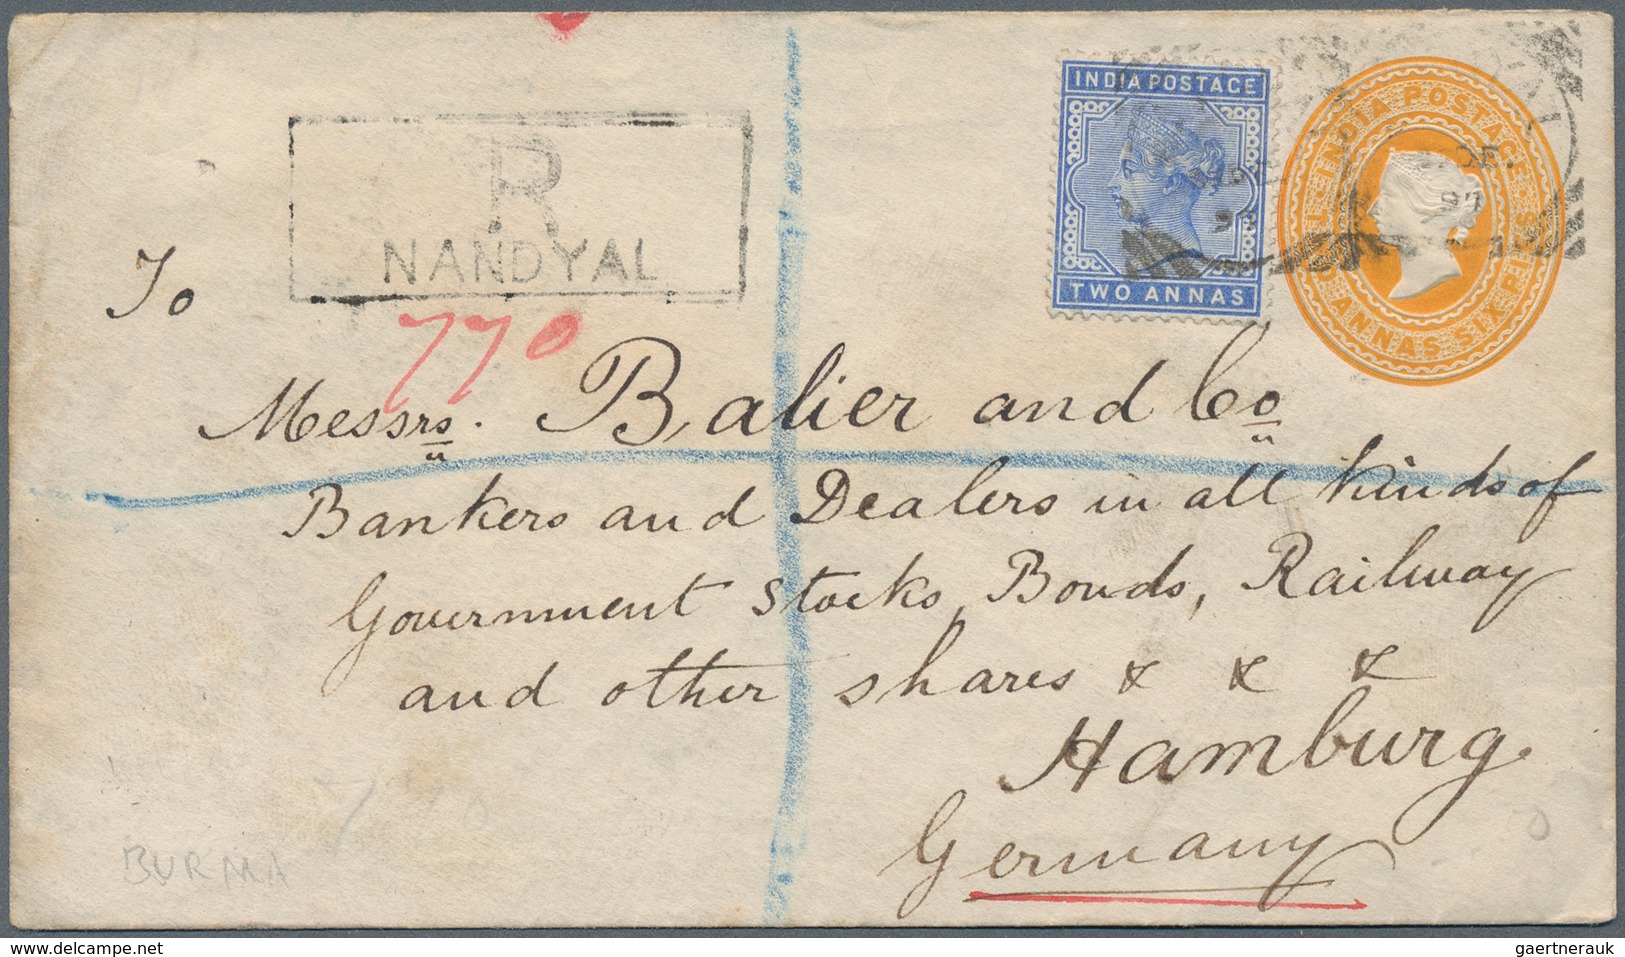 INDIA POSTAGE
TWO ANNAS
INDIA POSTAGE
ANNAS SIX PIES
97
R
NANDYAL
770
To
Messrs. Balier and Co
Bankers and Dealers in all kinds of
Government Stocks, Bonds, Railway
and other shares & & &
Hamburg.
Germany
770
BURMA
www.delcampe.net
gaertnerauk